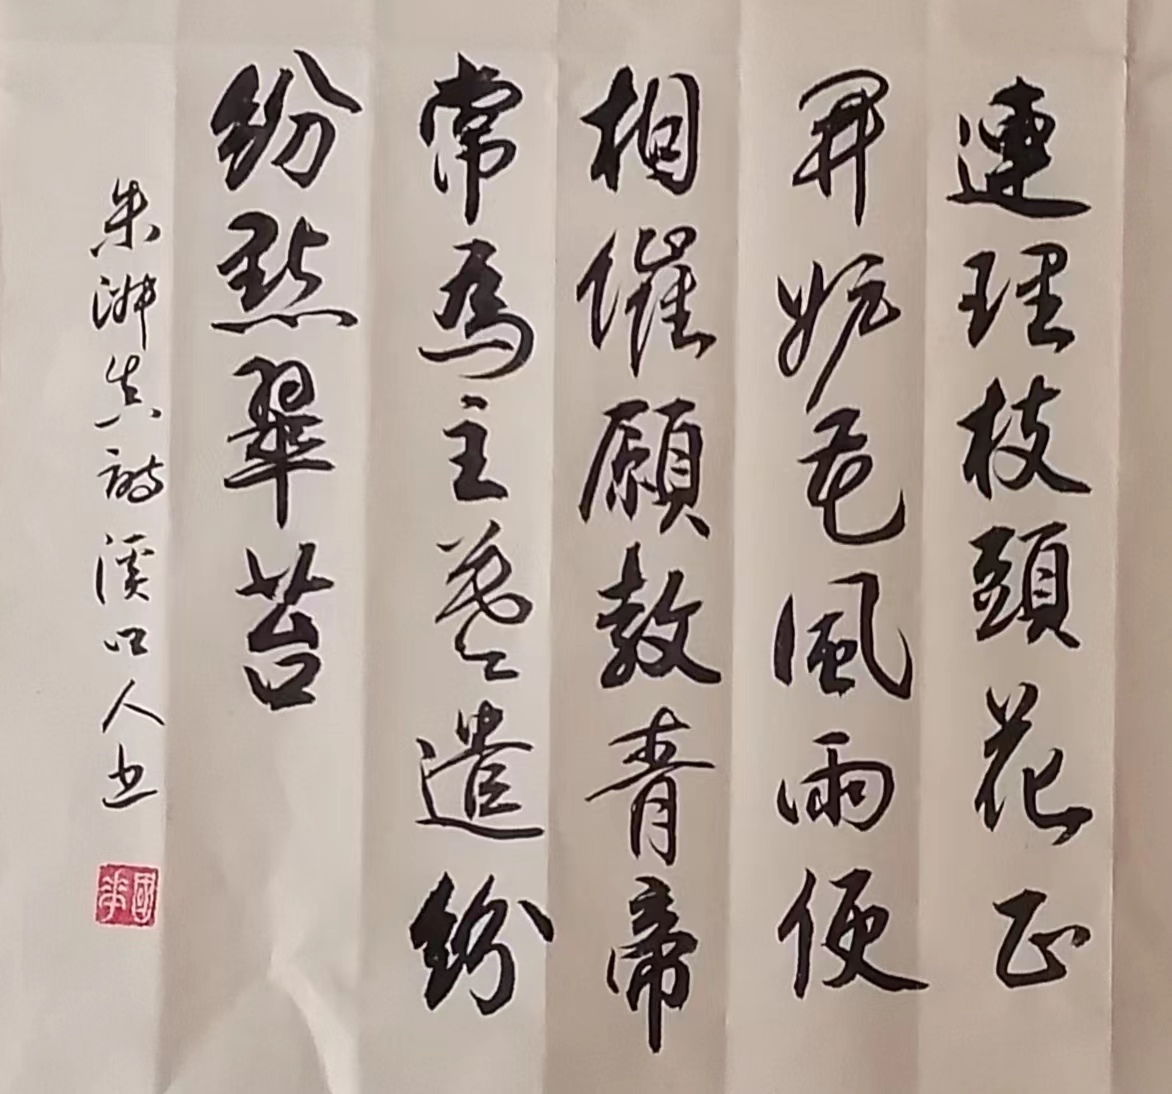 連理枝頭花正
開妒花風雨便
相催願教青帝
常為主莫遣紛
紛點翠苔
朱淑真詩溪口人书
國華